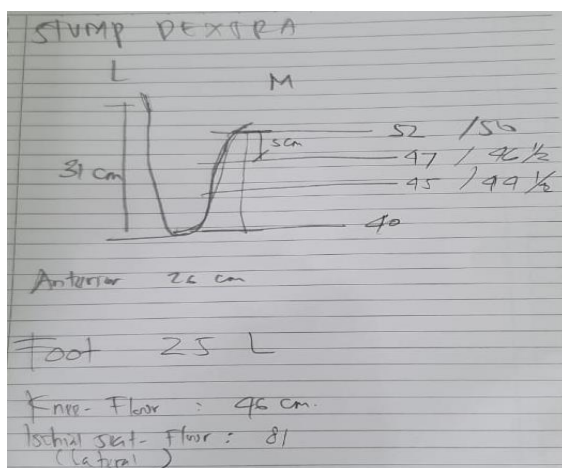 STUMP DEXTRA
L
M
52 / 50
5cm
47 / 46 1/2
31 cm
45 / 44 1/2
40
Anterior 26 cm
Foot 25 L
Knee-Floor : 46 cm.
Ischial seat-Floor : 81
(lateral)